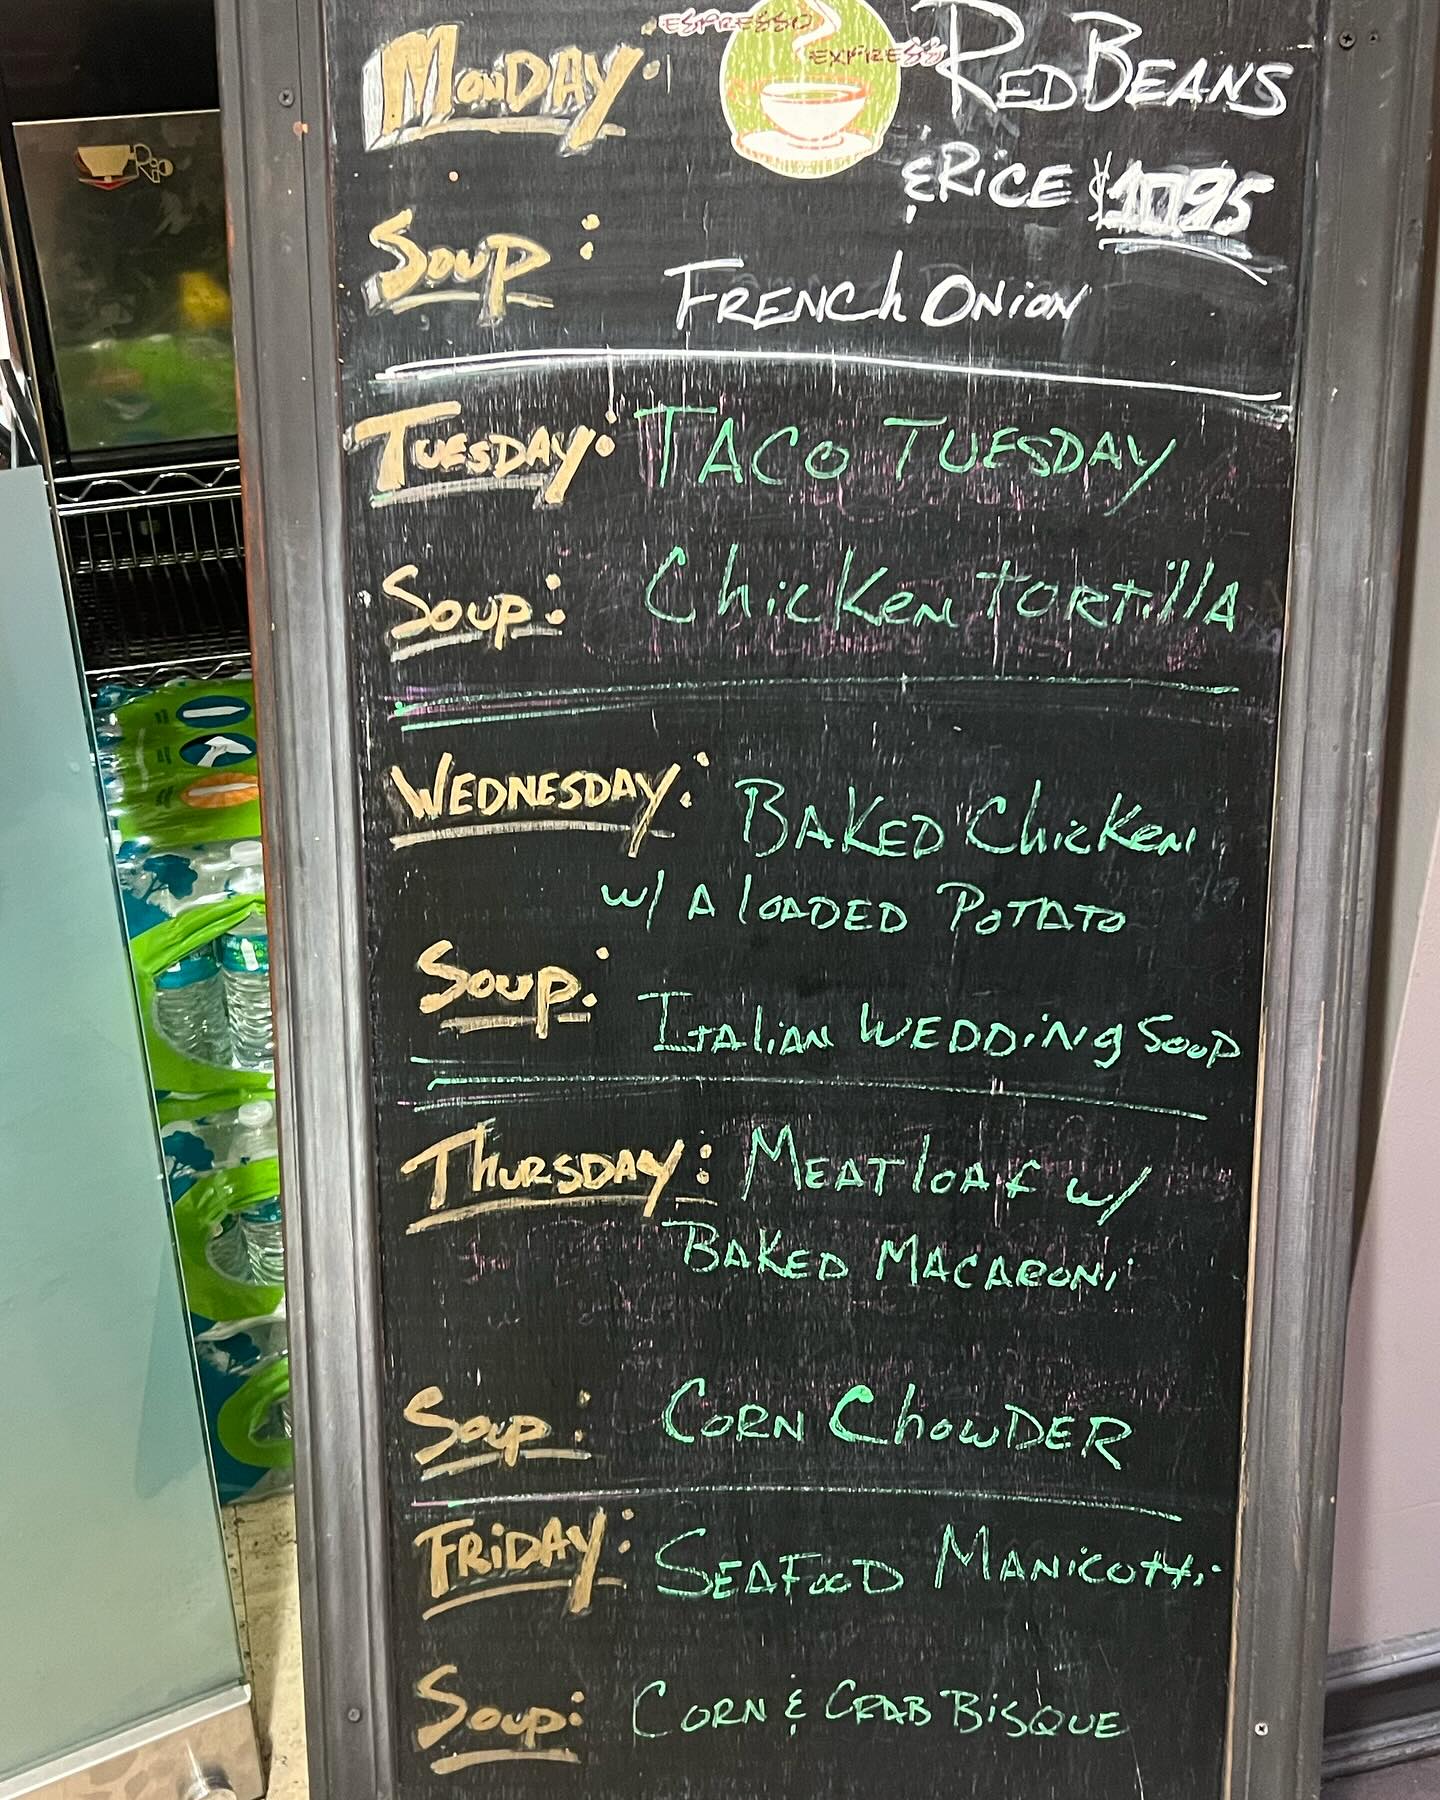 MONDAY:
ESPRESSO
EXPRESS
RED BEANS
& RICE $10.95
SOUP:
FRENCH ONION
TUESDAY: TACO TUESDAY
SOUP: Chicken TORTillA
WEDNESDAY: BAKED Chicken
w/ A lOADED POTATO
SOUP: ITAliAN WEDDiNg SOUP
ThURSDAY: MEATlOAf w/
BAKED MACARONi
SOUP: CORN ChOWDER
FRiDAY: SEAFOOD MANiCOTTi
SOUP: CORN & CRAB BiSQUE